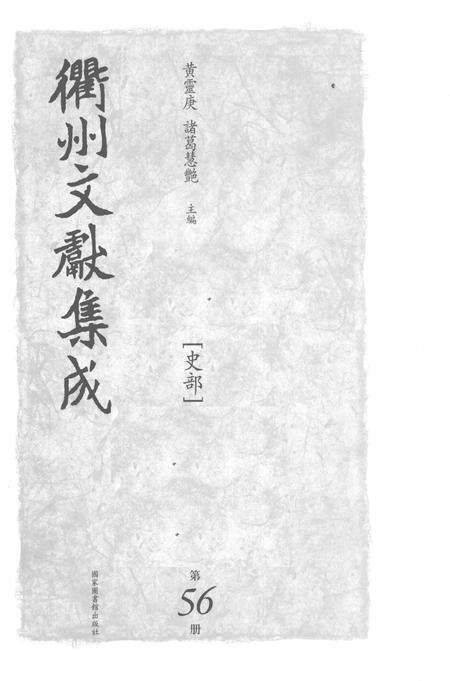 衢州文獻集成
黃靈庚 諸葛慧艷 主編
[史部]
第56册
國家圖書館出版社